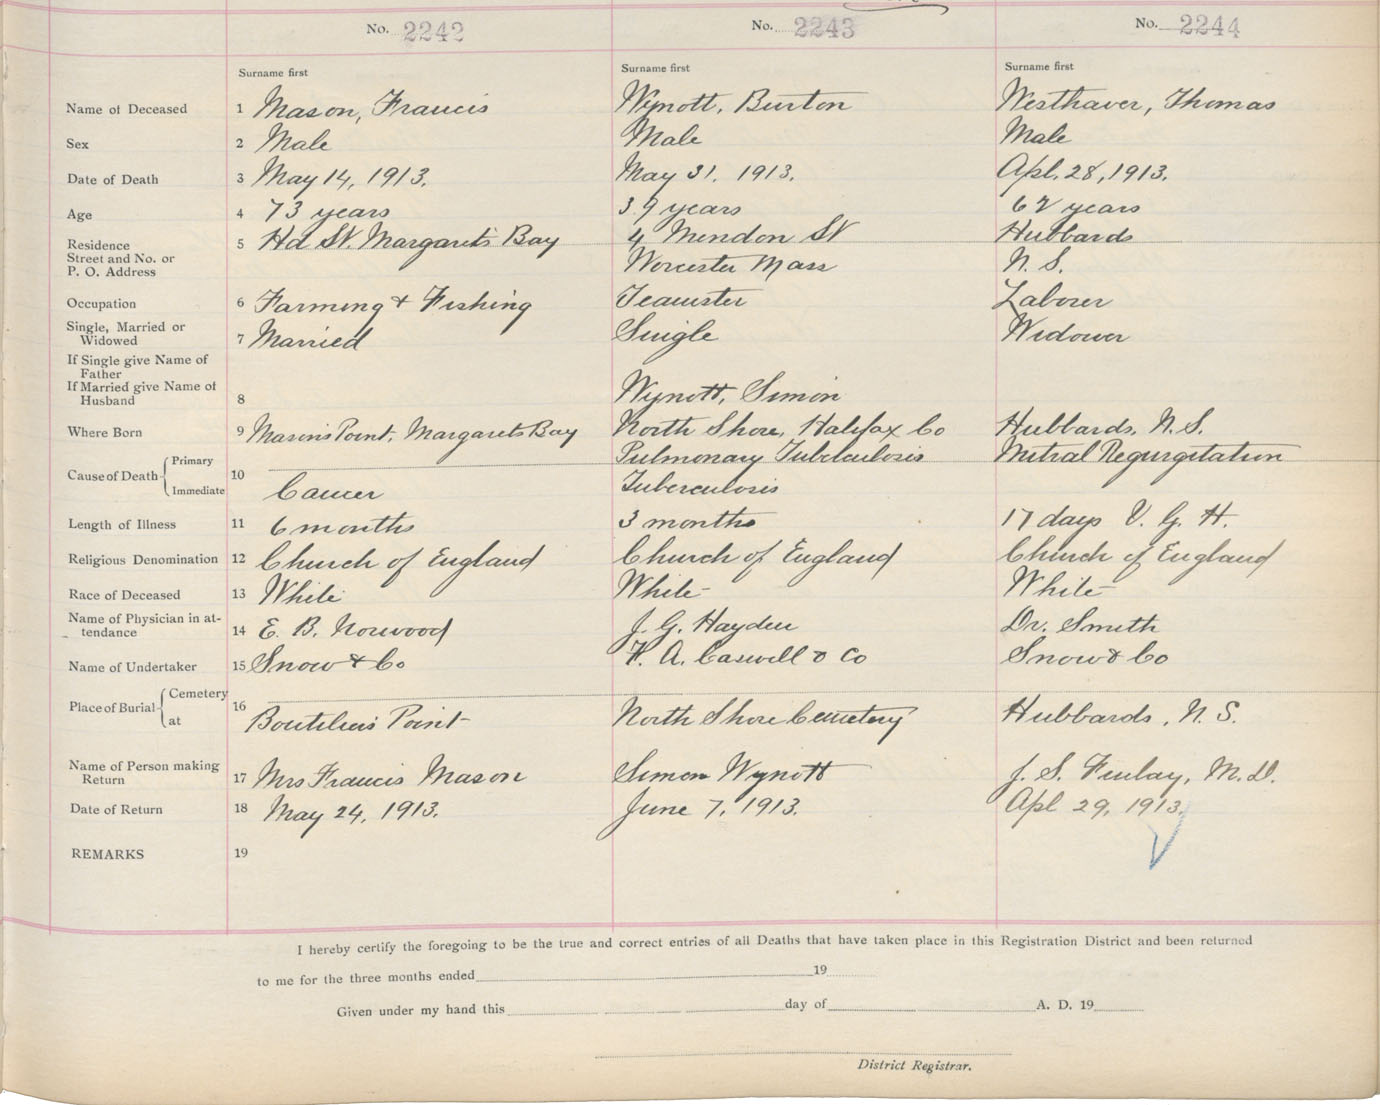 No. 2242 No. 2243 No. 2244
Surname first Surname first Surname first
Name of Deceased 1 Mason, Francis Wynott, Burton Westhaver, Thomas
Sex 2 Male Male Male
Date of Death 3 May 14, 1913. May 31. 1913. Apl. 28, 1913.
Age 4 73 years 39 years 62 years
Residence 5 Hd St Margaret's Bay 4 Mendon St Hubbards
Street and No. or
P. O. Address Worcester Mass N. S.
Occupation 6 Farming & Fishing Teamster Laborer
Single, Married or
Widowed 7 Married Single Widower
If Single give Name of
Father
If Married give Name of
Husband 8 Wynott, Simon
Where Born 9 Mason's Point, Margarets Bay North Shore, Halifax Co Hubbards, N. S.
Cause of Death Primary 10 Pulmonary Tuberculosis Mitral Regurgitation
Immediate Cancer Tuberculosis
Length of Illness 11 6 months 3 months 17 days V. G. H.
Religious Denomination 12 Church of England Church of England Church of England
Race of Deceased 13 White White White
Name of Physician in at-
tendance 14 E. B. Norwood J. G. Hayden Dr. Smith
Name of Undertaker 15 Snow & Co F. A. Caswell & Co Snow & Co
Place of Burial Cemetery 16
at Boutilier's Point North Shore Cemetery Hubbards, N. S.
Name of Person making
Return 17 Mrs Francis Mason Simon Wynott J. S. Finlay, M.D.
Date of Return 18 May 24, 1913. June 7, 1913. Apl 29, 1913.
REMARKS 19
I hereby certify the foregoing to be the true and correct entries of all Deaths that have taken place in this Registration District and been returned
to me for the three months ended 19
Given under my hand this day of A. D. 19
District Registrar.